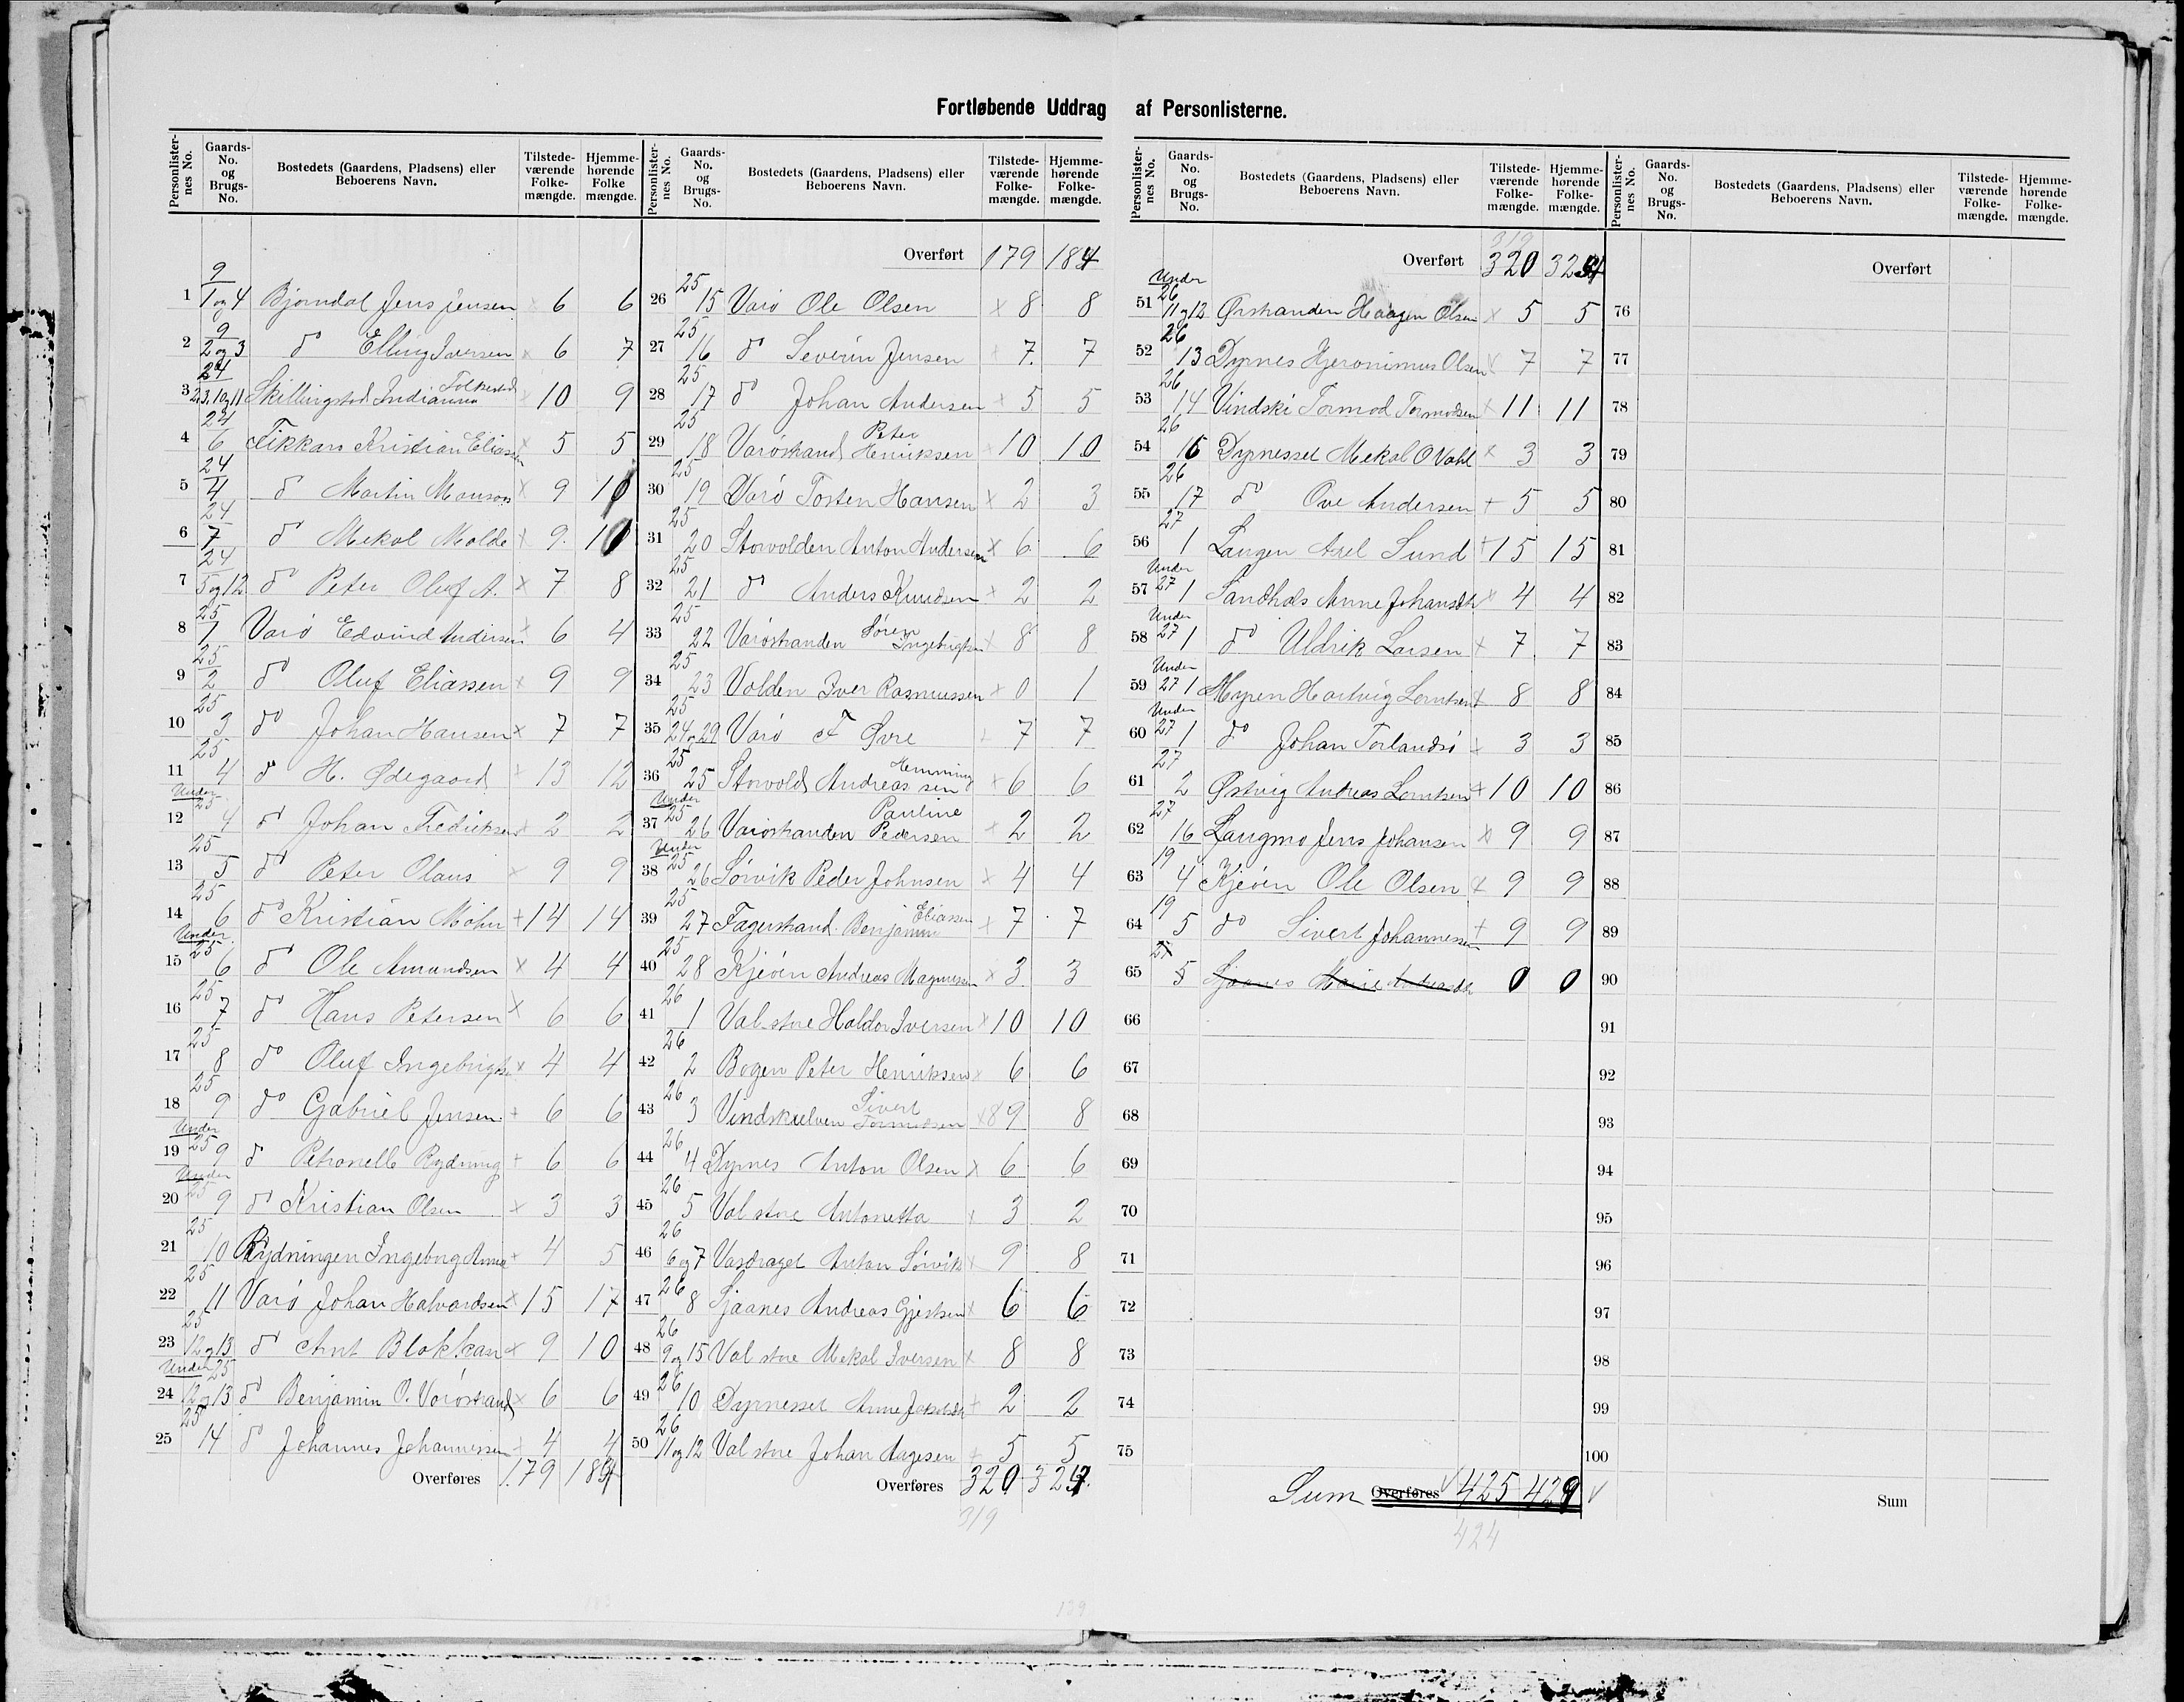 Fortløbende Uddrag af Personlisterne.
Personlisternes No. Gaards-No. og Brugs-No. Bostedets (Gaardens, Pladsens) eller Beboerens Navn. Tilstedeværende Folkemængde. Hjemmehørende Folkemængde.
1 9/1 og 4 Bjørndal Jens Jensen x 6 6
2 9/2 og 3 do Elling Iversen x 6 7
3 24/2,3,10 og 11 Skillingstad Indianna Folkestad 10 9
4 24/6 Fikkan Kristian Eliassen x 5 5
5 24/4 do Martin Monson x 9 10
6 24/7 do Mekal Molde x 9 10
7 24/5 og 12 do Peter Oluf A. x 7 8
8 25/1 Varø Edvind Andersen x 6 4
9 25/2 do Oluf Eliassen x 9 9
10 25/3 do Johan Hansen x 7 7
11 25/4 do H. Ødegaard x 13 12
12 Under 25/4 do Johan Fredriksen x 2 2
13 25/5 do Peter Olaus x 9 9
14 25/6 do Kristian Mohn + 14 14
15 Under 25/6 do Ole Amundsen x 4 4
16 25/7 do Hans Petersen x 6 6
17 25/8 do Oluf Ingebrigts x 4 4
18 25/9 do Gabriel Jensen + 6 6
19 Under 25/9 do Petronelle Rydning + 6 6
20 Under 25/9 do Kristian Olsen x 3 3
21 25/10 Rydningen Ingeborg Anna + 4 5
22 25/11 Varø Johan Halvardsen x 15 17
23 25/12 og 13 do Ant Blokkan x 9 10
24 Under 25/12 og 13 do Benjamin O. Varøstrand x 6 6
25 25/14 do Johannes Johannessen + 4 4
Overføres 179 184
Personlisternes No. Gaards-No. og Brugs-No. Bostedets (Gaardens, Pladsens) eller Beboerens Navn. Tilstedeværende Folkemængde. Hjemmehørende Folkemængde.
Overført 179 184
26 25/15 Varø Ole Olsen x 8 8
27 25/16 do Severin Jensen + 7 7
28 25/17 do Johan Andersen + 5 5
29 25/18 Varøstrand Peter Henriksen + 10 10
30 25/19 Varø Tosten Hansen x 2 3
31 25/20 Storvolden Anton Andersen x 6 6
32 25/21 do Anders Knudsen + 2 2
33 25/22 Varøstranden Søren Ingebrigtsen x 8 8
34 25/23 Volden Iver Rasmussen + 0 1
35 25/24 og 29 Varø F Øvre + 7 7
36 25/25 Storvold Andreas Hemmingsen + 6 6
37 Under 25/26 Varøstranden Pauline Pedersen x 2 2
38 Under 25/26 Sørvik Peder Johnsen x 4 4
39 25/27 Fagerstrand Benjamin Eliassen + 7 7
40 25/28 Kjeøen Andreas Magnussen x 3 3
41 26/1 Val store Haldor Iversen x 10 10
42 26/2 Bogen Peter Henriksen x 6 6
43 26/3 Vindskulven Sivert Tormodsen x 8 9 8
44 26/4 Dyrnes Anton Olsen x 6 6
45 26/5 Val store Antonetta x 3 2
46 26/6 og 7 Vasdraget Anton Sørvik x 9 8
47 26/8 Sjaanes Andreas Gjertsen x 6 6
48 26/9 og 15 Val store Mekal Iversen x 8 8
49 26/10 Dyrnesset Anne Jakobsdt + 2 2
50 26/11 og 12 Val store Johan Aagesen + 5 5
Overføres 320 324
319
Personlisternes No. Gaards-No. og Brugs-No. Bostedets (Gaardens, Pladsens) eller Beboerens Navn. Tilstedeværende Folkemængde. Hjemmehørende Folkemængde.
319
Overført 320 324
51 Under 26/11 og 12 Ørstranden Haagen Olsen x 5 5
52 26/13 Dyrnes Hjeronimus Olsen x 7 7
53 26/14 Vindski Tormod Tormodsen x 11 11
54 26/16 Dyrnesset Mekal O Vahl x 3 3
55 26/17 do Ove Andersen + 5 5
56 27/1 Langen Axel Sund + 15 15
57 Under 27/1 Sandhals Anne Johansdt x 4 4
58 Under 27/1 do Uldrik Larsen + 7 7
59 Under 27/1 Myren Hartvig Lorntsen x 8 8
60 Under 27/1 do Johan Torlandsø + 3 3
61 27/2 Østvig Andreas Lorntsen + 10 10
62 27/16 Langmo Jens Johansen x 9 9
63 19/4 Kjeøen Ole Olsen x 9 9
64 19/5 do Sivert Johannessen + 9 9
65 5 Sjaanes Marie Andreasdt 0 0
66
67
68
69
70
71
72
73
74
75
Sum Overføres √ 425 429 √
424
Personlisternes No. Gaards-No. og Brugs-No. Bostedets (Gaardens, Pladsens) eller Beboerens Navn. Tilstedeværende Folkemængde. Hjemmehørende Folkemængde.
Overført
76
77
78
79
80
81
82
83
84
85
86
87
88
89
90
91
92
93
94
95
96
97
98
99
100
Sum
139